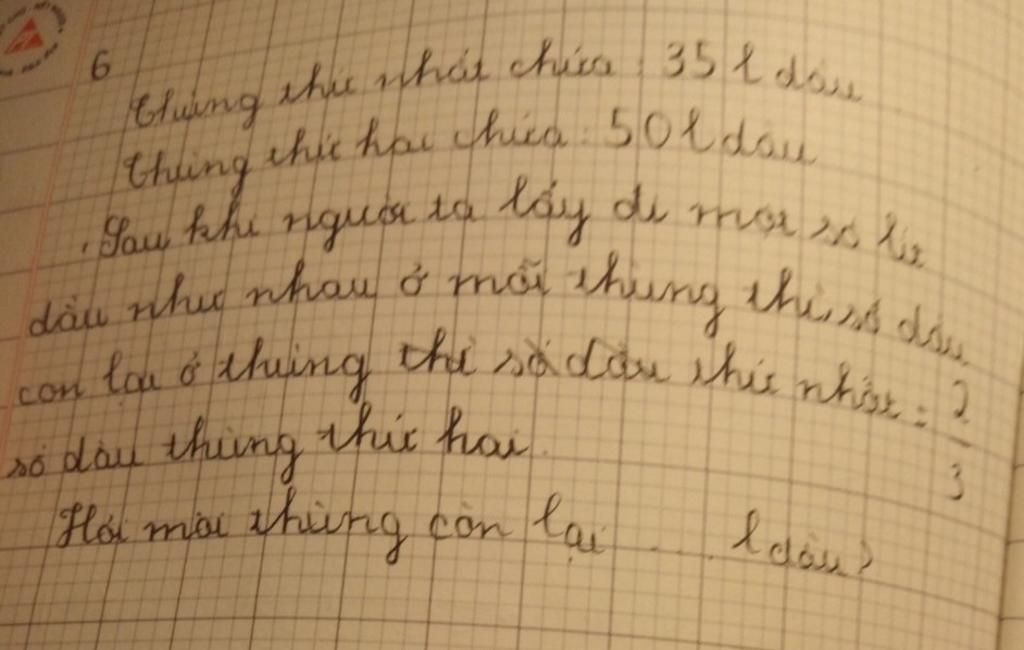 6
Thùng thứ nhất chứa: 35 l dầu
Thùng thứ hai chứa: 50 l dầu
. Sau khi người ta lấy đi một số lít
dầu như nhau ở mỗi thùng thì số dầu
còn lại ở thùng thì số dầu thứ nhất = 2/3
số dầu thùng thứ hai.
Hỏi mỗi thùng còn lại .... l dầu?